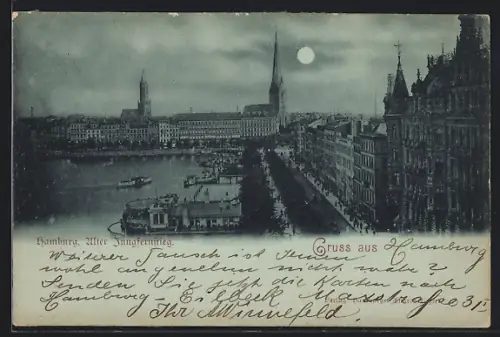 Hamburg, Alter Jungfernstieg.
Gruss aus Hamburg
Weiterer Tausch ist Ihnen
wohl angenehm nicht wahr?
Senden Sie jetzt die Karten nach
Hamburg-Eilbeck Maxstrasse 31
Ihr Minnefeld.